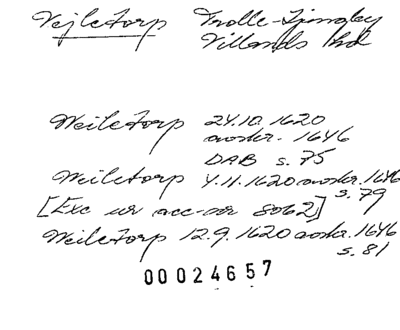 Vejletorp Trolle-Ljungby
Villands hd
Weiletorp 24.10.1620
avskr. 1646
DAB s. 75
Weiletorp 4.11.1620 avskr. 1646
s. 79
[Exc ur acc-nr 8062]
Weiletorp 12.9.1620 avskr. 1646
s. 81
00024657